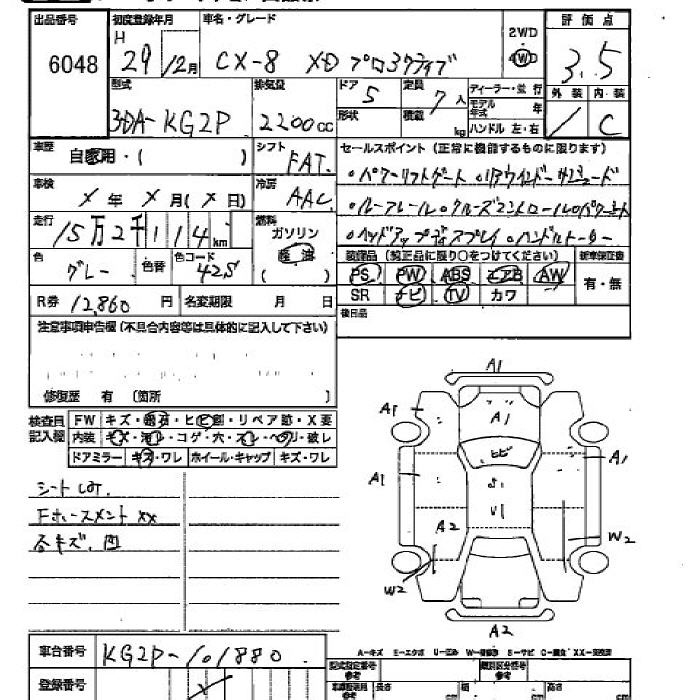 出品番号 初度登録年月 車名・グレード 評価点
6048 H 29年12月 CX-8 XD プロアクティブ 2WD 4WD 3.5
型式 排気量 ドア 5 定員 7人 ディーラー・並行 外装 内装
3DA-KG2P 2200cc 形状 積載 kg モデル年式 年 ハンドル 左・右 C
車歴 自家用・( ) シフト FAT セールスポイント (正常に機能するものに限ります)
車検 X年 X月(X日) 冷房 AAC 。パワーリフトゲート
走行 15万2千114km 燃料 ガソリン 軽油 ( ) 。ルーフレール 。クルーズコントロール
。ヘッドアップディスプレイ 。ハンドルヒーター
色 グレー 色替 色コード 42S 装備品 (純正品に限り○をつけてください) 新車保証書
PS PW ABS エアB AW 有・無
R券 12,860円 名変期限 月 日 SR ナビ TV カワ
注意事項申告欄 (不具合内容等は具体的に記入して下さい) 後日品
修復歴 有 (箇所 )
検査員記入欄 FW キズ・飛石・ヒビ・割・リペア跡・X要
内装 キズ・汚レ・コゲ・穴・スレ・ヘリ・破レ
ドアミラー キズ・ワレ ホイール・キャップ キズ・ワレ
Fホースメント XX
各キズ、凹
A1
A1 A1
ヒビ
A1 S1 A1
V1
A2
W2 W2
A2
車台番号 KG2P-101880
登録番号
A-キズ E-エクボ U-凹み W-補修跡 S-サビ C-腐食 XX-交換済
型式指定番号 参考 類別区分番号 参考
長さ cm 幅 cm 高さ cm